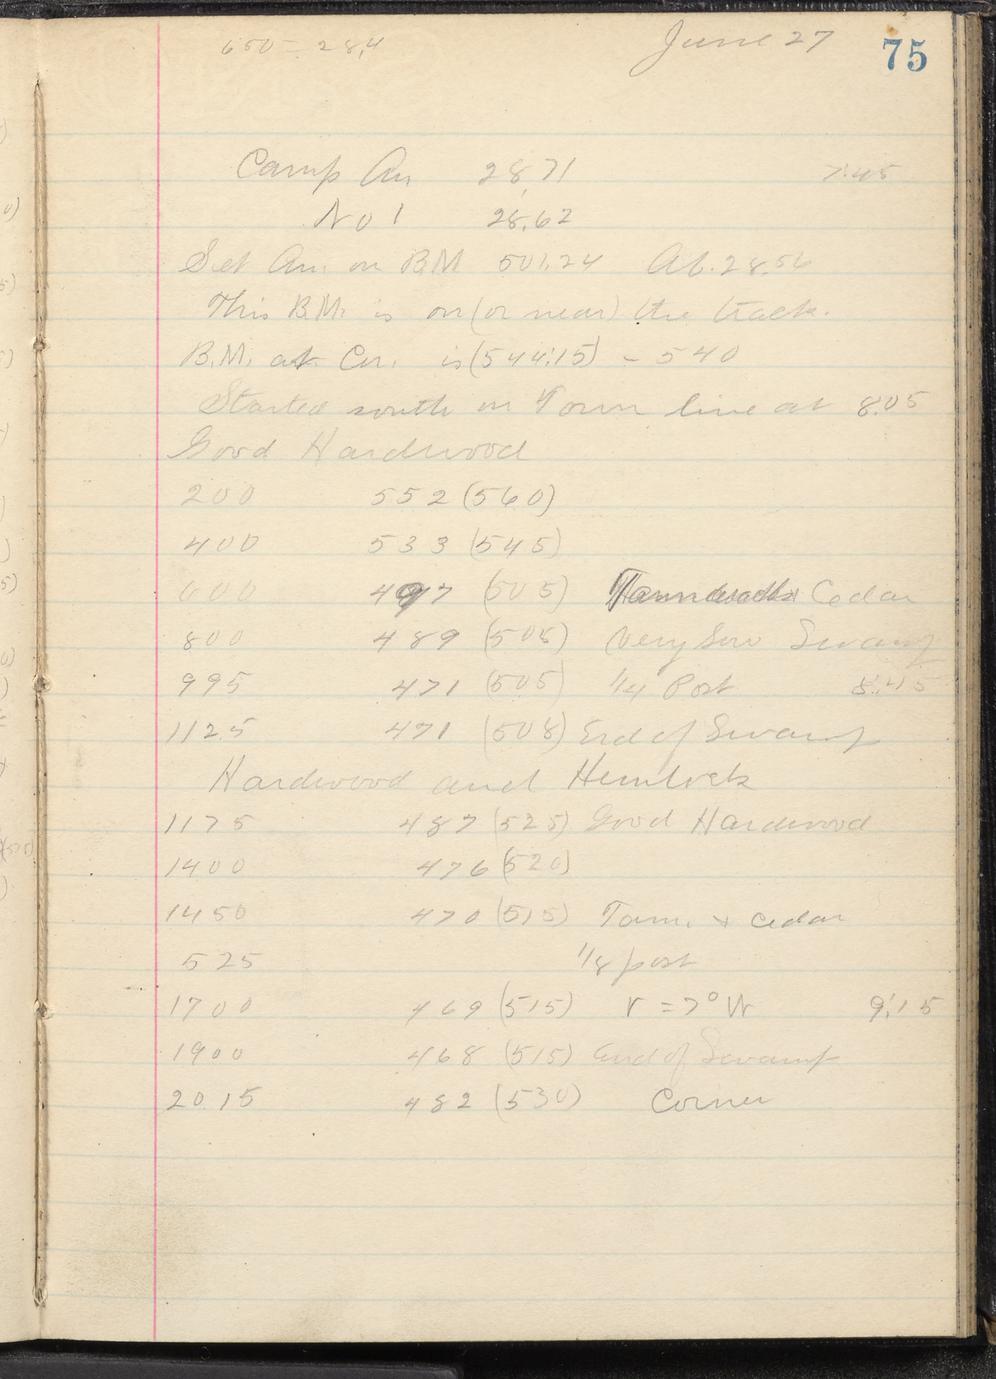 650 = 28.4 June 27 75
Camp An 28.71 7:45
No 1 28.62
Set An. on BM 501.24 At. 28.56
This B.M. is on (or near) the track.
B.M. at Cor. is (544.15) - 540
Started south on Town line at 8:05
Good Hardwood
200 552 (560)
400 533 (545)
600 497 (505) Cedar
800 489 (505) Very low Swamp
995 471 (505) 1/4 Post 8:45
1125 471 (508) End of Swamp
Hardwood and Hemlock
1175 487 (525) Good Hardwood
1400 476 (520)
1450 470 (515) Tam. + Cedar
525 1/8 post
1700 469 (515) V = 7° W 9:15
1900 468 (515) End of Swamp
2015 482 (530) Corner